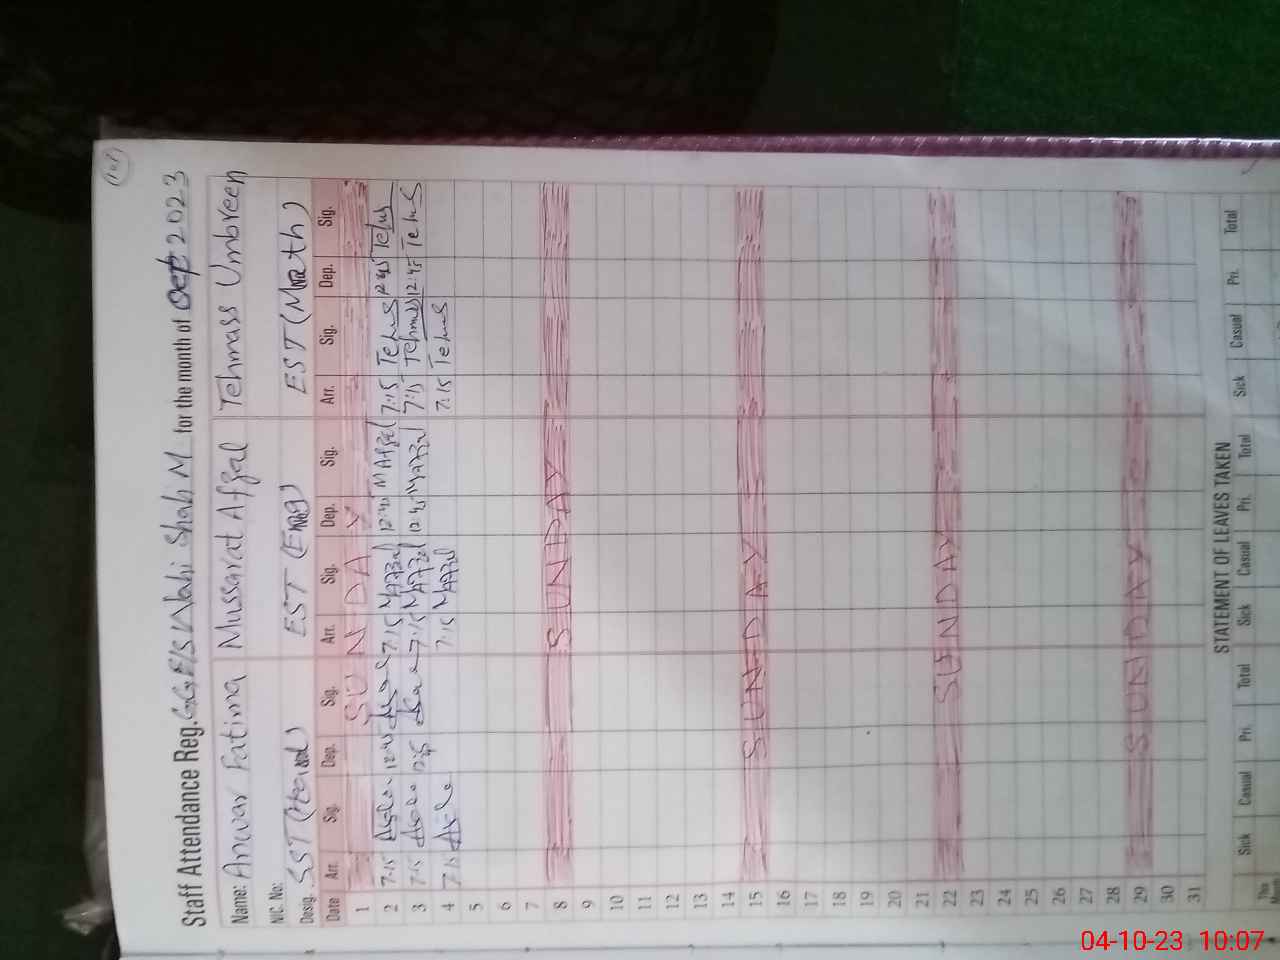 Staff Attendance Reg. GGE/S Wahi Shah M for the month of Oct 2023
Name: Anwar Fatima Mussarat Afzal Tehmass Umbreen
NIC. No:
Desig. SST (Head) EST (Eng) EST (Math)
Date Arr. Sig. Dep. Sig. Arr. Sig. Dep. Sig. Arr. Sig. Dep. Sig.
1 SUNDAY
2 7:15 12:45 7:15 MAfzal 12:45 MAfzal 7:15 Tehms 12:45 Tehms
3 7:15 12:45 7:15 MAfzal 12:45 MAfzal 7:15 Tehmass 12:45 Tehms
4 7:15 7:15 MAfzal 7:15 Tehms
5
6
7
8 SUNDAY
9
10
11
12
13
14
15 SUNDAY
16
17
18
19
20
21
22 SUNDAY
23
24
25
26
27
28
29 SUNDAY
30
31
STATEMENT OF LEAVES TAKEN
Sick Casual Pri. Total Sick Casual Pri. Total Sick Casual Pri. Total
04-10-23 10:07